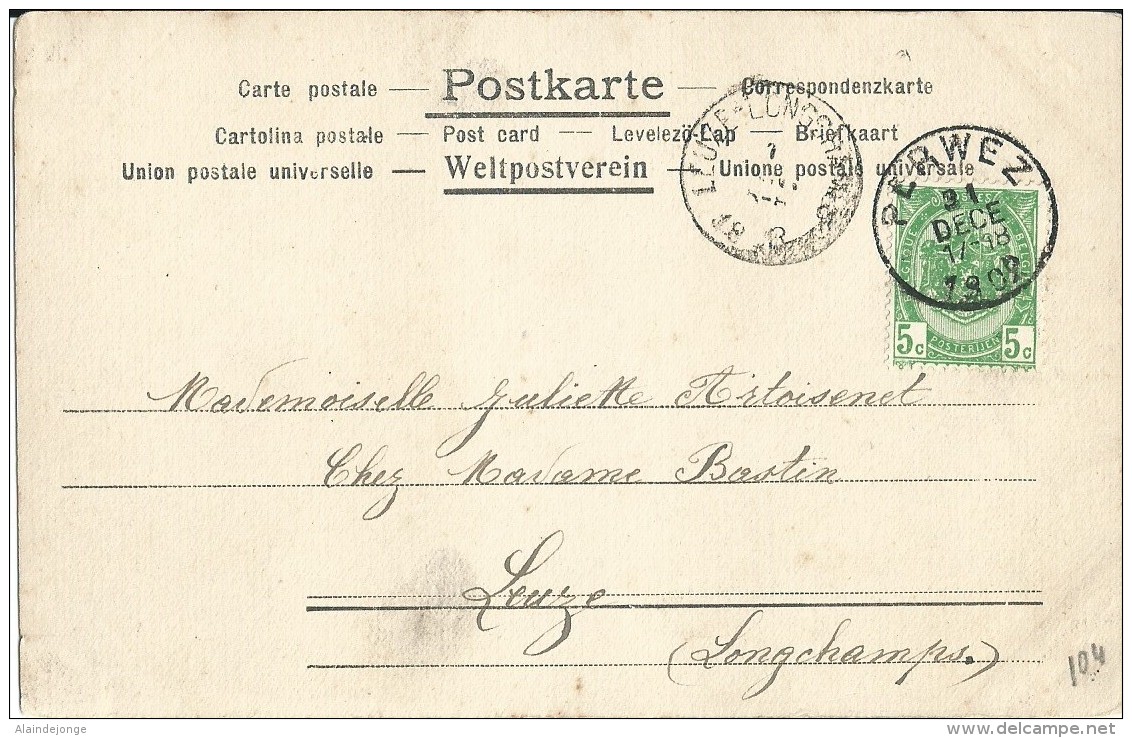 Carte postale — Postkarte — Correspondenzkarte
Cartolina postale — Post card — Levelező-Lap — Briefkaart
Union postale universelle — Weltpostverein — Unione postale universale
LEUZE-LONGCHAMPS
PERWEZ
31
DECE
17-18
BELGIQUE BELGIË
5c POSTERIJEN 5c
Mademoiselle Juliette Artoisenet
Chez Madame Bastin
Leuze
(Longchamps.)
104
Alaindejonge
www.delcampe.net